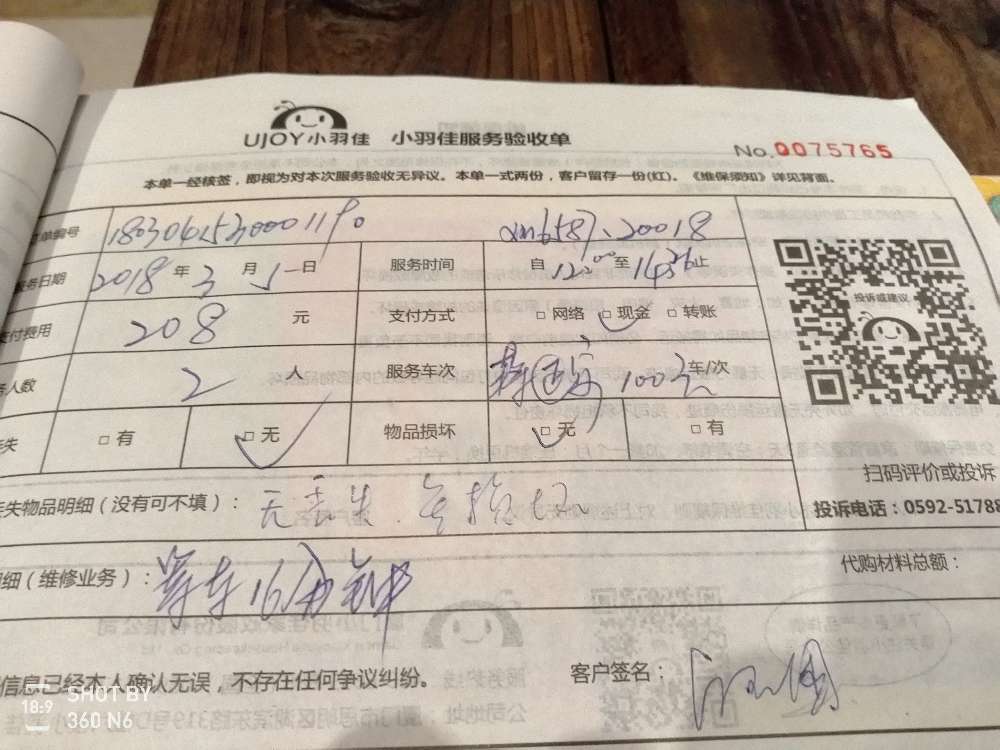 UJOY小羽佳 小羽佳服务验收单
No.0075765
本单一经核签，即视为对本次服务验收无异议。本单一式两份，客户留存一份(红)。《维保须知》详见背面。
单编号
务日期 2018 年 3 月 1 日 服务时间 自 12:00 至 止
支付费用 208 元 支付方式 □ 网络 □ 现金 □ 转账
人数 2 人 服务车次 100元 车/次
失 □ 有 □ 无 物品损坏 □ 无 □ 有
投诉或建议
扫码评价或投诉
投诉电话：0592-51788
失物品明细（没有可不填）： 无丢失
细（维修业务）： 等车16分钟
代购材料总额：
信息已经本人确认无误，不存在任何争议纠纷。
客户签名：
SHOT BY
18:9 360 N6